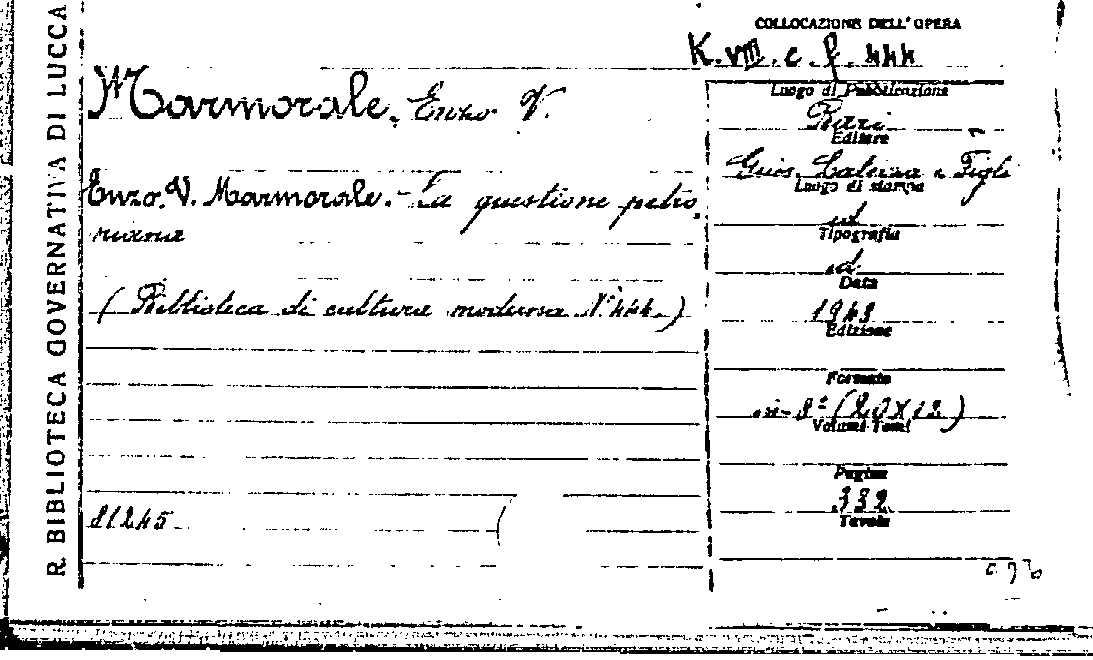 R. BIBLIOTECA GOVERNATIVA DI LUCCA
COLLOCAZIONE DELL'OPERA
K. VIII. c. f. 444
Marmorale, Enzo V.
Enzo. V. Marmorale. - La questione petro,
niana
( Biblioteca di cultura moderna N° 444. )
81245
Luogo di Pubblicazione
Bari
Editore
Gius. Laterza e Figli
Luogo di stampa
id
Tipografia
id.
Data
1943
Edizione
Formato
in-8° (20x12)
Volumi-Tomi
Pagine
332
Tavole